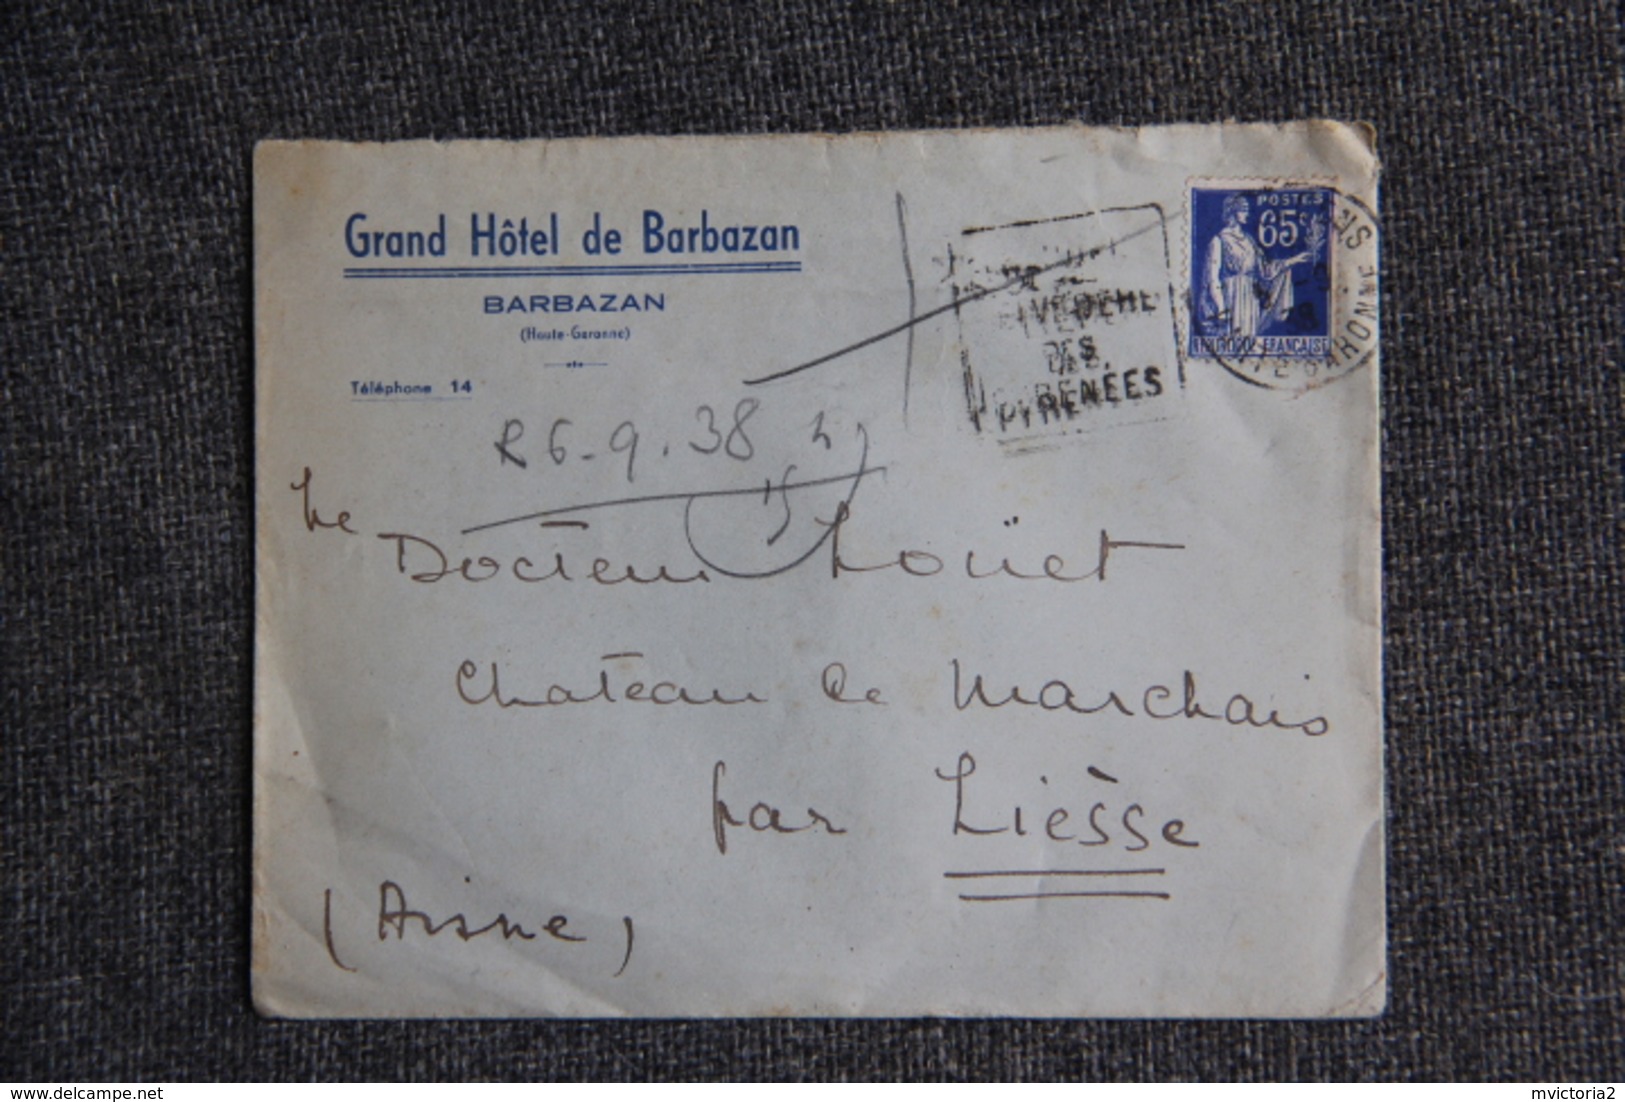 Grand Hôtel de Barbazan
BARBAZAN
(Haute-Garonne)
Téléphone 14
POSTES
65c
RÉPUBLIQUE FRANÇAISE
DES
PYRÉNÉES
R 6-9.38
Le Docteur Louët
Chateau de Marchais
par Lièsse
(Aisne)
delcampe.net
mvictoria2